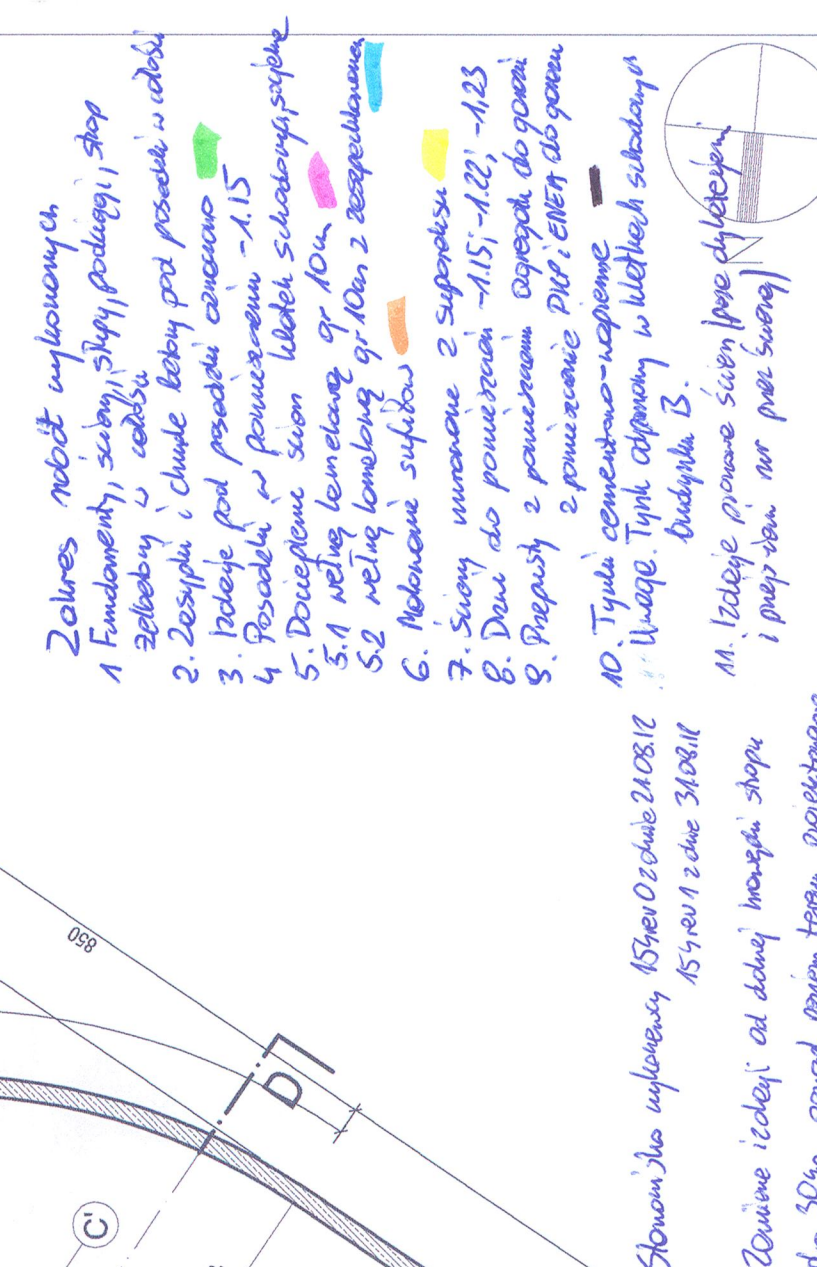 Zakres robót wykonanych
1 Fundamenty, ściany, słupy, podciągi, strop
żelbetowy w całości
2. Zasypki i chude betony pod posadzki w całości
3. Izolacje pod posadzki oznaczono
4 Posadzki w pomieszczeniu -1.15
5. Docieplenie ścian klatek schodowych,
5.1 wełną lamelową gr 10cm
5.2 wełną lamelową gr 10cm z
6. Malowanie sufitów
7. Ściany murowane z suporeksu
8. Drzwi do pomieszczeń -1.15; -1.22; -1,23
9. Przepusty z pomieszczenia agregatu do garażu
z pomieszczenie PWP i ENEA do garażu
10. Tynki cementowo-wapienne
Uwaga. Tynk odporowy w klatkach schodowych
budynku B.
11. Izolacje pionowe ścian (poza dylatacjami
i
Stanowisko wykonawcy 154 rev 0 z dnia 21.08.12
154 rev 1 z dnia 31.08.12
Zamiana izolacji od dolnej krawędzi stropu
do 30cm ponad poziom terenu projektowanego
N
850
D
C'